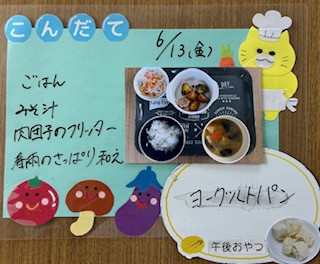 こんだて
6/13(金)
ごはん
みそ汁
肉団子のフリッター
春雨のさっぱり和え
ヨークルトパン
午後おやつ